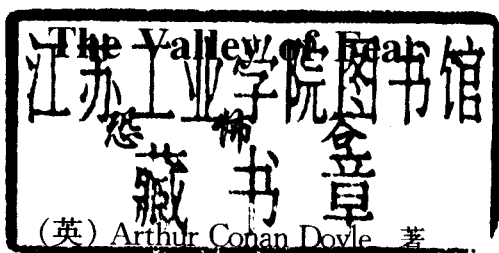 The Valley of Fear
江苏工业学院图书馆
恐怖谷
藏书章
(英) Arthur Conan Doyle 著